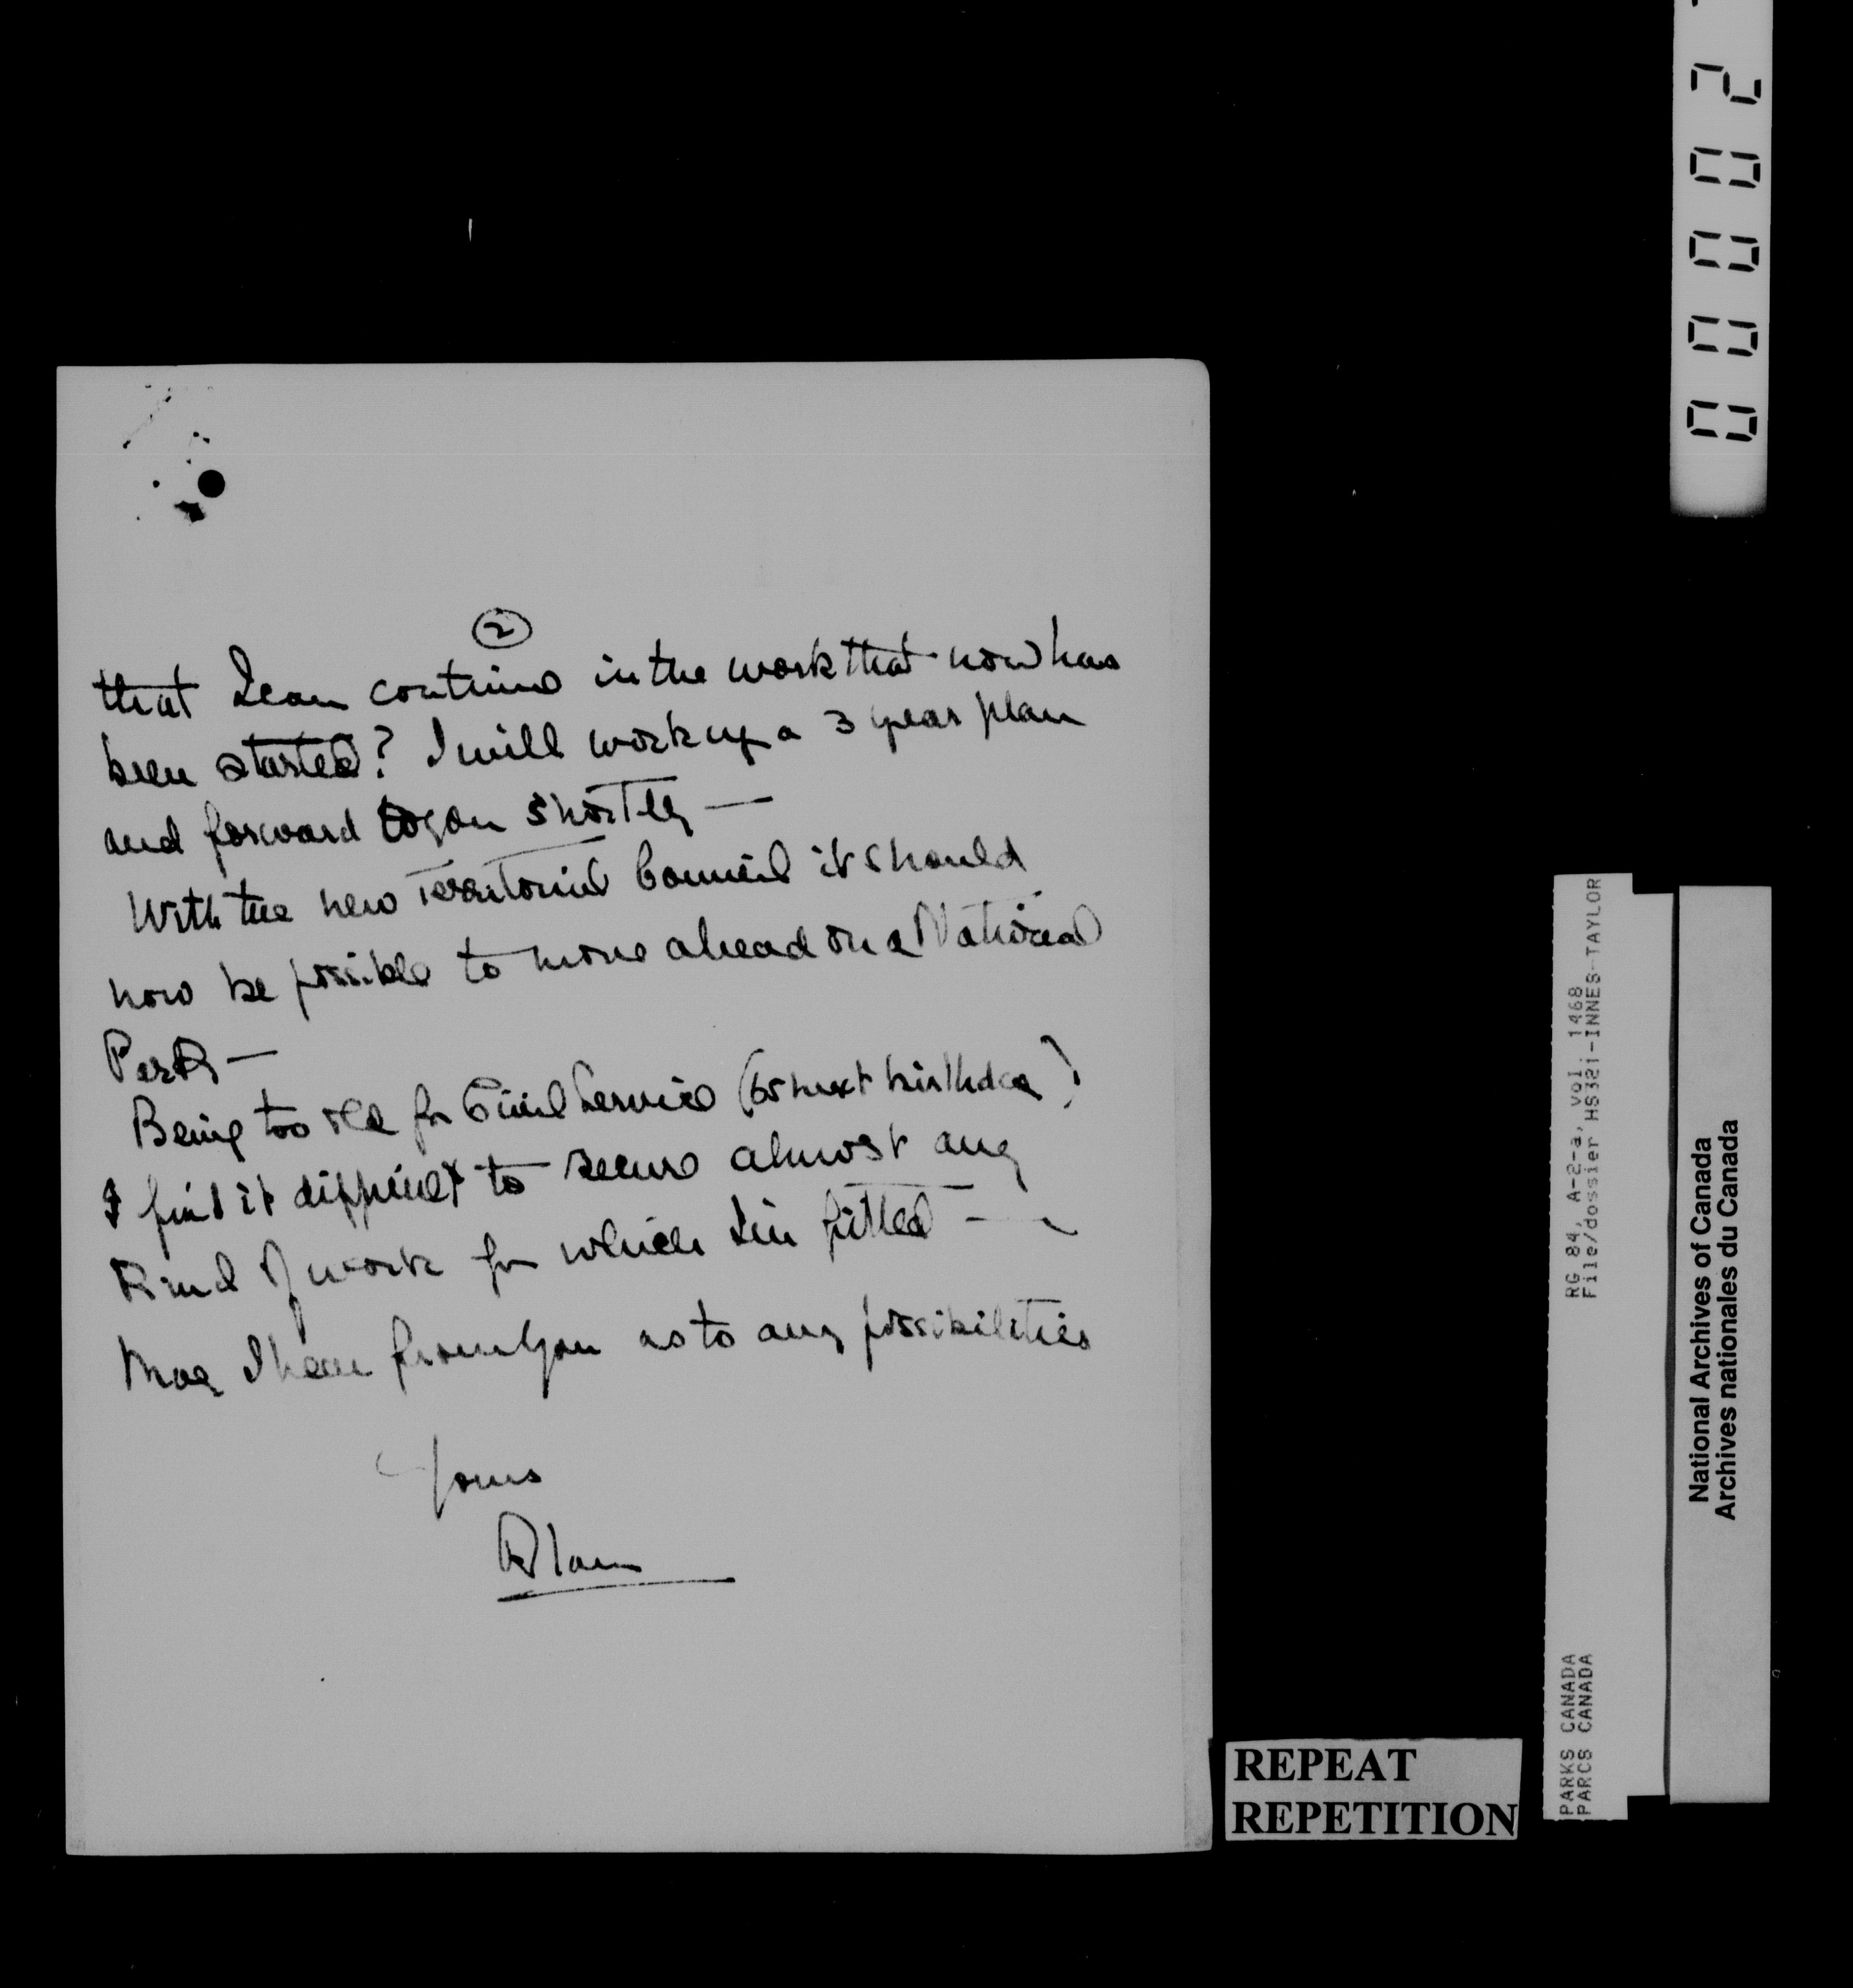 2
that I can continue in the work that now has
been started? I will work up a 3 year plan
and forward to you shortly —
With the new Territorial Council it should
now be possible to move ahead on a National
Park —
Being too old for Civil Service (65 next birthday)
I find it difficult to secure almost any
kind of work for which I'm fitted —
May I hear from you as to any possibilities
Yours
Alan
REPEAT
REPETITION
00002
RG 84, A-2-a, vol. 1468
File/dossier HS321-INNES-TAYLOR
PARKS CANADA
PARCS CANADA
National Archives of Canada
Archives nationales du Canada